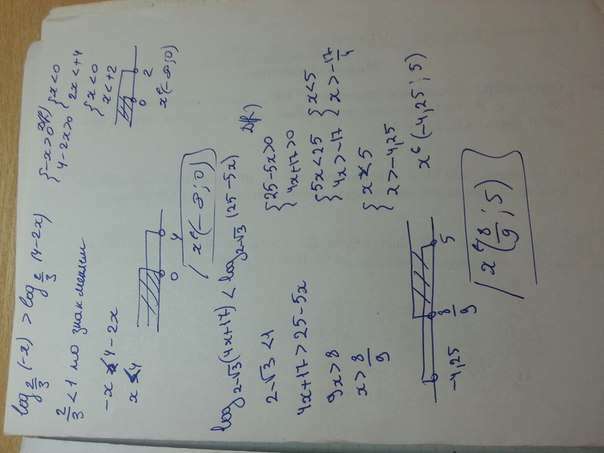 log_{2/3} (-x) > log_{2/3} (4-2x)
2/3 < 1 то знак меняем
-x < 4-2x
x < 4
0 4
x ∈ (-∞; 0)
{-x>0
4-2x>0
{x<0
2x<+4
{x<0
x<+2
0 2
x ∈ (-∞; 0)
log_{2-√3} (4x+17) < log_{2-√3} (25-5x)
2-√3 < 1
4x+17 > 25-5x
9x > 8
x > 8/9
{25-5x>0
4x+17>0
{5x<25
4x>-17
{x<5
x>-17/4
{x<5
x>-4,25
x ∈ (-4,25; 5)
-4,25 8/9 5
x ∈ (8/9; 5)